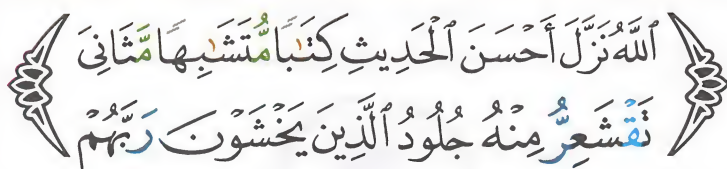 ٱللَّهُ نَزَّلَ أَحْسَنَ ٱلْحَدِيثِ كِتَٰبًا مُّتَشَٰبِهًا مَّثَانِىَ
تَقْشَعِرُّ مِنْهُ جُلُودُ ٱلَّذِينَ يَخْشَوْنَ رَبَّهُمْ